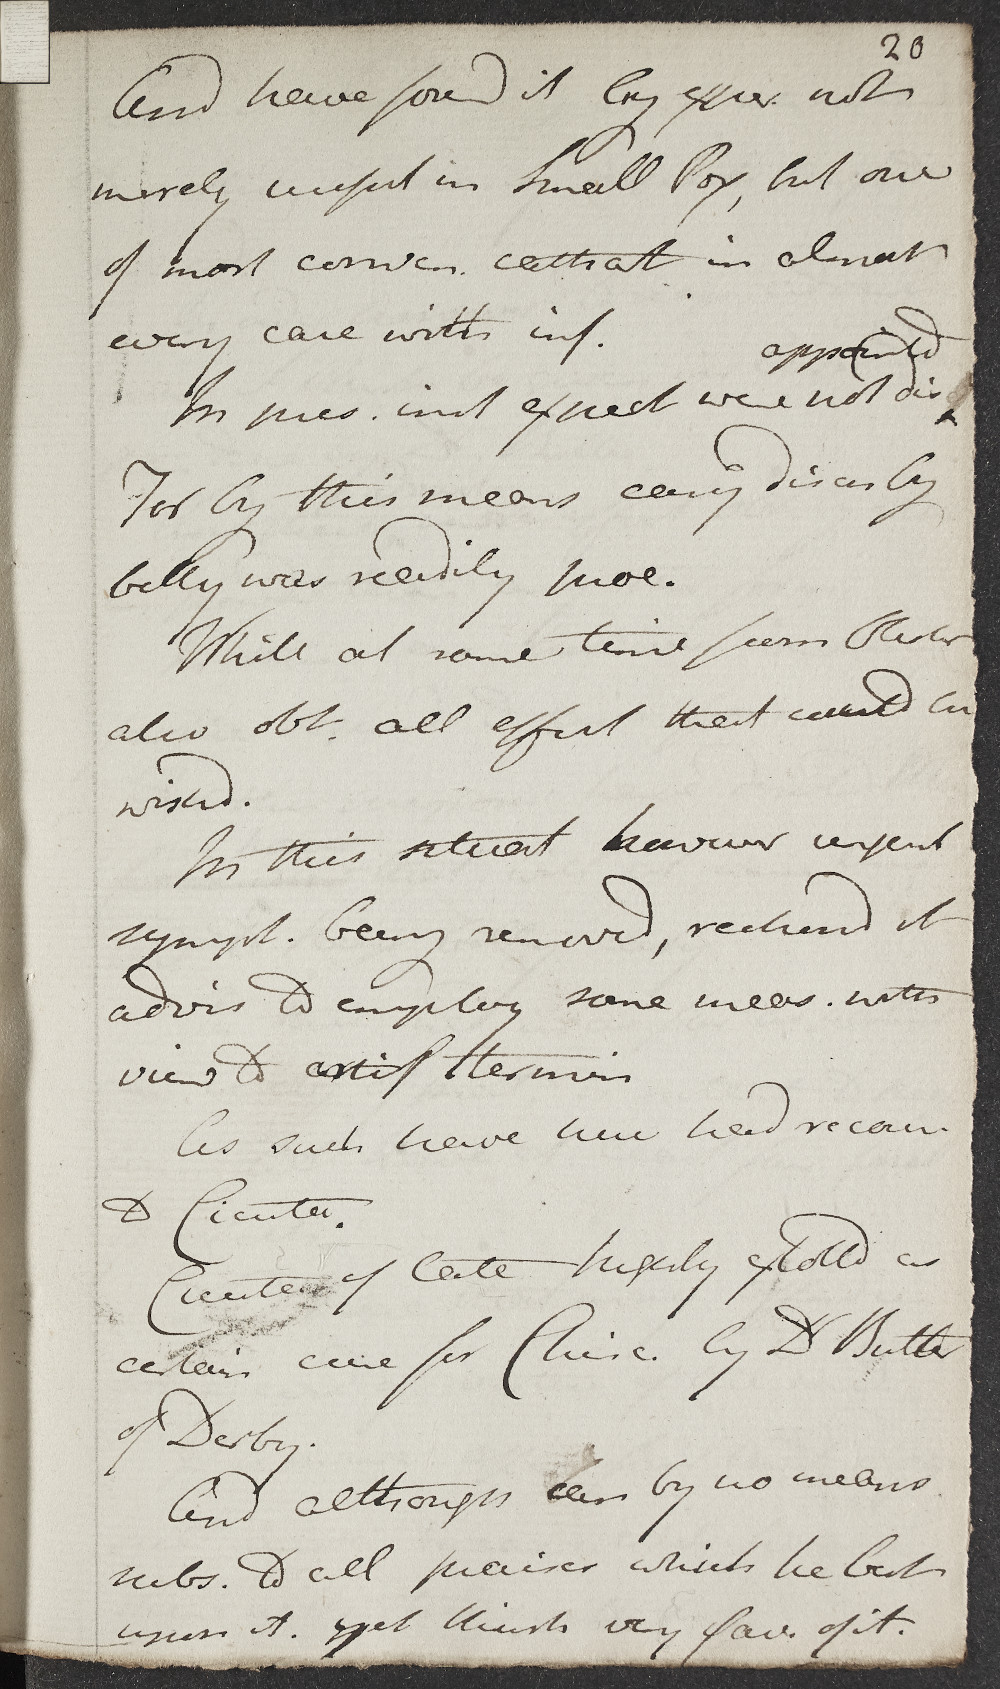 20
And have found it by exper. not
merely useful in Small Pox, but one
of most conven. cathart in almost
every case with inf.
appointed
In pres. inst expect were not dis
For by this means easy disc by
belly was readily proc.
While at same time from Blister
also obt. all effect that could be
wished.
In this situat however urgent
sympt. being removed, reckond it
advis to employ some meas. with
view to artif termin
As such have here had recour.
to Cicuta.
Cicuta of late highly extolld as
certain cure for Chinc. by Dr Butter
of Derby.
And although can by no means
subs. to all praises which he best
upon it. yet think very fav. of it.